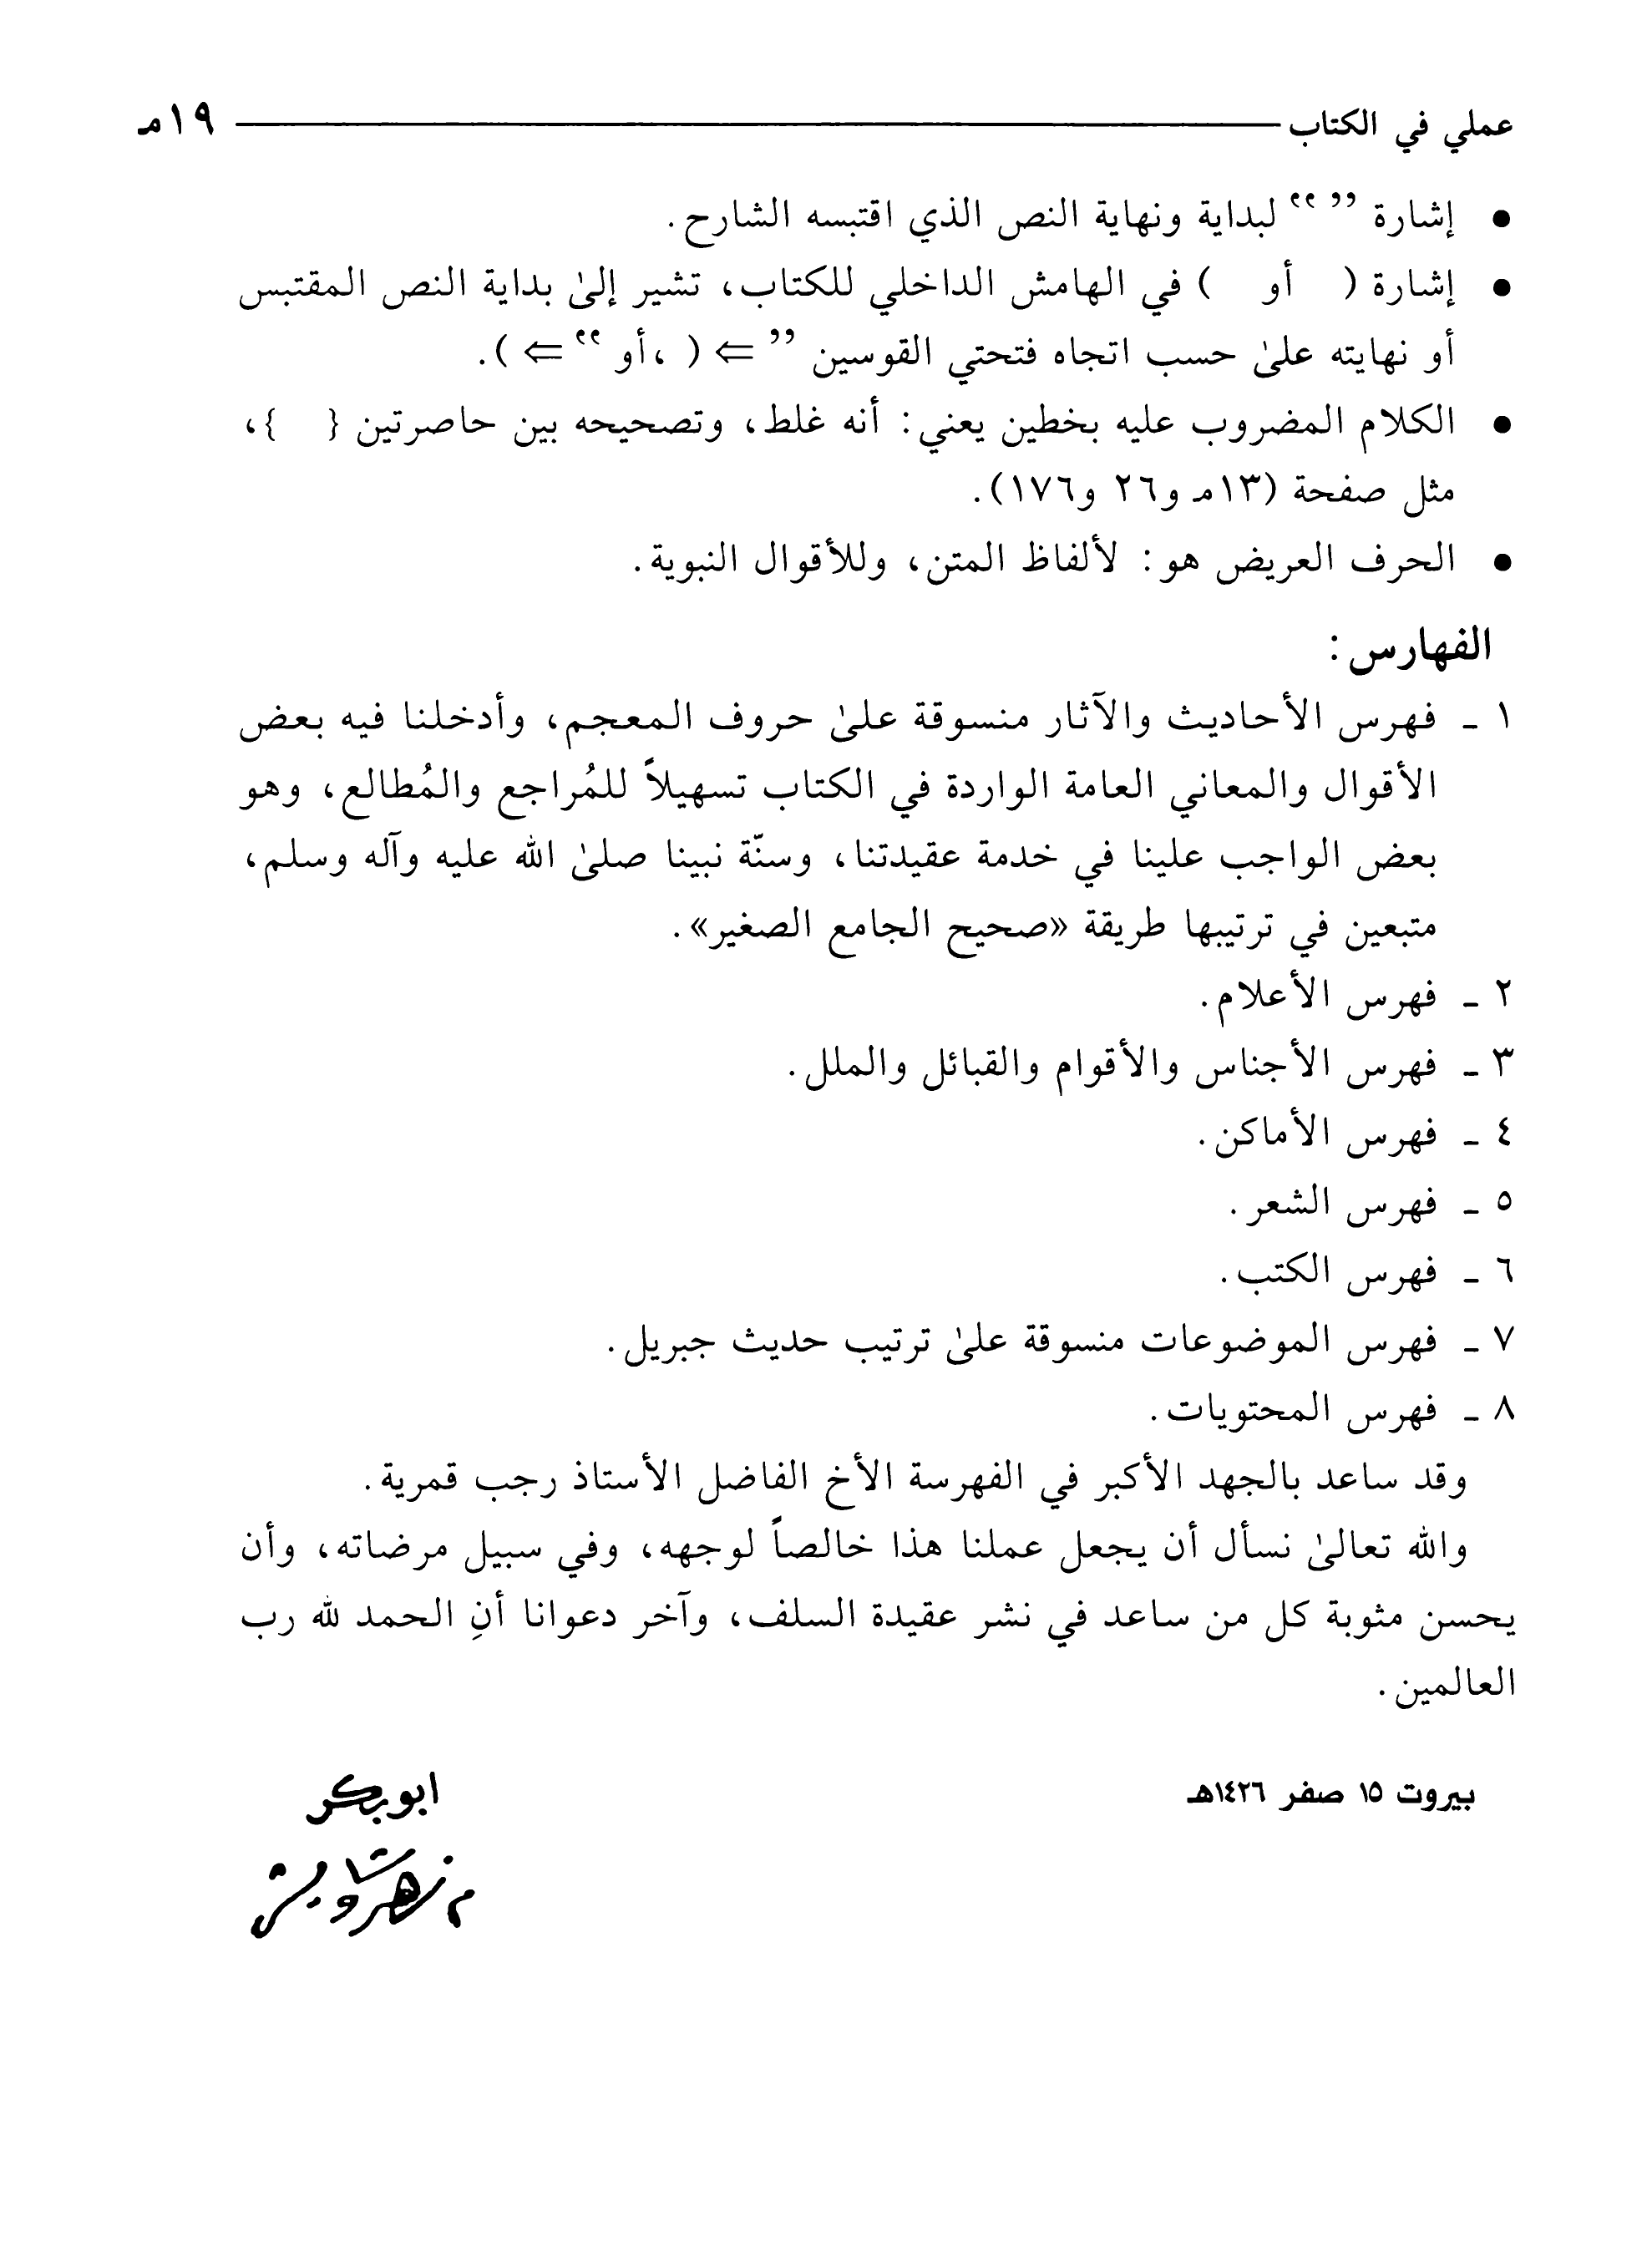 عملي في الكتاب ١٩مـ
• إشارة ” “ لبداية ونهاية النص الذي اقتبسه الشارح.
• إشارة ( أو ) في الهامش الداخلي للكتاب، تشير إلىٰ بداية النص المقتبس
أو نهايته علىٰ حسب اتجاه فتحتي القوسين ” ⇐ ( ،أو “ ⇐ ).
• الكلام المضروب عليه بخطين يعني: أنه غلط، وتصحيحه بين حاصرتين { }،
مثل صفحة (١٣مـ و٢٦ و١٧٦).
• الحرف العريض هو: لألفاظ المتن، وللأقوال النبوية.
الفهارس:
١ ـ فهرس الأحاديث والآثار منسوقة علىٰ حروف المعجم، وأدخلنا فيه بعض
الأقوال والمعاني العامة الواردة في الكتاب تسهيلاً للمُراجع والمُطالع، وهو
بعض الواجب علينا في خدمة عقيدتنا، وسنّة نبينا صلىٰ الله عليه وآله وسلم،
متبعين في ترتيبها طريقة «صحيح الجامع الصغير».
٢ ـ فهرس الأعلام.
٣ ـ فهرس الأجناس والأقوام والقبائل والملل.
٤ ـ فهرس الأماكن.
٥ ـ فهرس الشعر.
٦ ـ فهرس الكتب.
٧ ـ فهرس الموضوعات منسوقة علىٰ ترتيب حديث جبريل.
٨ ـ فهرس المحتويات.
وقد ساعد بالجهد الأكبر في الفهرسة الأخ الفاضل الأستاذ رجب قمرية.
والله تعالىٰ نسأل أن يجعل عملنا هذا خالصاً لوجهه، وفي سبيل مرضاته، وأن
يحسن مثوبة كل من ساعد في نشر عقيدة السلف، وآخر دعوانا أنِ الحمد لله رب
العالمين.
بيروت ١٥ صفر ١٤٢٦هـ
ابوبكر